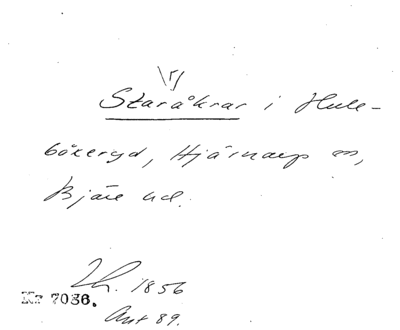 \r/
Staråkrar i Hule-
böxeryd, Hjärnarp sn,
Bjäre hd.
Th. 1856
Nr 7036.
Ant 89.